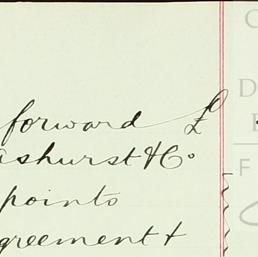 forward £
ashurst & Co
points
greement +